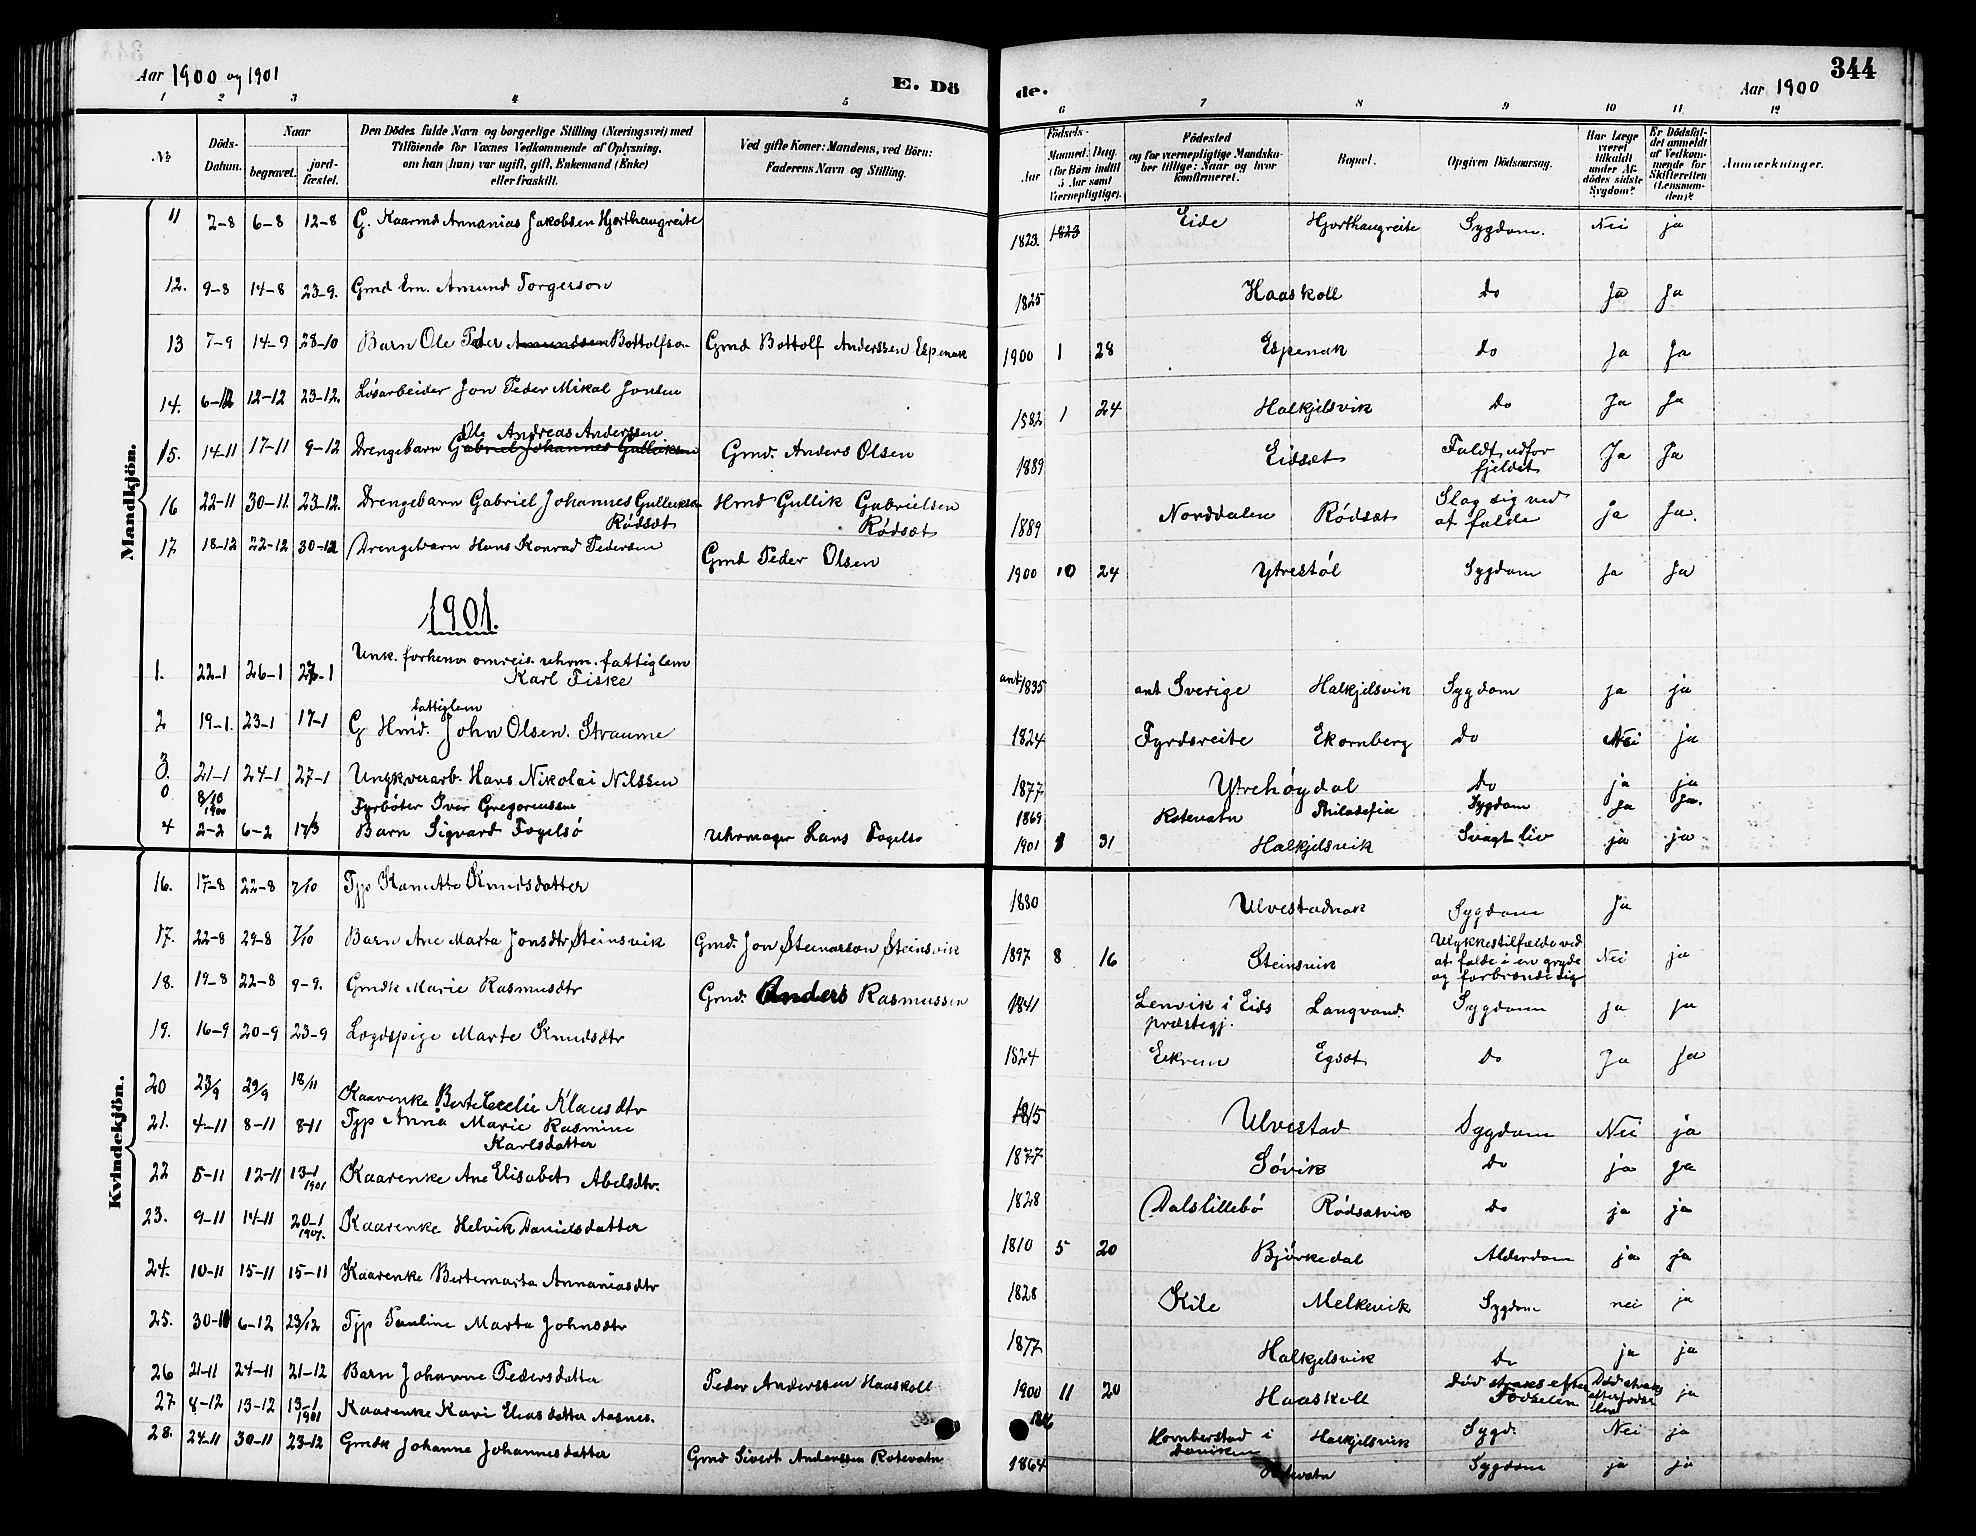 Aar 1900 og 1901
E. Dö
de.
Aar 1900
344
1 2 3 4 5 6 7 8 9 10 11 12
№
Döds-
Datum.
Naar
begravet.
jord-
fæstet.
Den Dödes fulde Navn og borgerlige Stilling (Næringsvei) med
Tilföiende for Voxnes Vedkommende af Oplysning,
om han (hun) var ugift, gift, Enkemand (Enke)
eller fraskilt.
Ved gifte Koner: Mandens, ved Börn:
Faderens Navn og Stilling.
Födsels-
Aar
Maaned. Dag.
(for Börn indtil
5 Aar samt
Værnepligtige).
Födested
og for værnepligtige Mandsku-
ber tillige: Naar og hvor
konfirmeret.
Bopæl.
Opgiven Dödsaarsag.
Har Læge
været
tilkaldt
under Af-
dödes sidste
Sygdom?
Er Dödsfal-
det anmeldt
af Vedkom-
mende for
Skifteretten
(Lensman-
den)?
Anmærkninger.
Mandkjön.
11 2-8 6-8 12-8 G. Kaarmd Annanias Jakobsen Hjorthaugreite 1823. 1823 Eide Hjorthaugreite Sygdom. Nei ja
12. 9-8 14-8 23-9. Gmd Em. Amund Torgerson 1825 Haaskoll do Ja Ja
13 7-9 14-9 28-10 Barn Ole Peder Amundsen Bottolfson Gmd Bottolf Anderssen Espenak 1900 1 28 Espenak do Ja Ja
14. 6-12 12-12 23-12. Lösarbeider Jon Peder Mikal Jonsen 1882 1 24 Halkjelsvik do Ja Ja
Ole Andreas Anderssen
15. 14-11 17-11 9-12 Drengebarn Gabriel Johannes Gulliksen Gmd. Anders Olsen 1889 Eidsæt Faldt udfor
fjeldet Ja Ja
16 22-11 30-11. 23-12. Drengebarn Gabriel Johannes Gulleksen
Rödsæt Hmd Gullik Gabrielsen
Rödsæt 1889 Norddalen Rödsæt Slog sig ved
at falde ja Ja.
17 18-12 22-12 30-12 Drengebarn Hans Konrad Pedersen Gmd Peder Olsen 1900 10 24 Ytrestöl Sygdom Ja Ja
1901.
1. 22-1 26-1 27-1 Unk. forhenv. omreis. uhrm. fattiglem
Karl Fiske ant 1835 ant Sverige Halkjelsvik Sygdom ja ja
fattiglem
2 19-1. 23-1 17-1 G Hmd. John Olsen. Straume 1824 Fyrdsreite Ekornberg do Nei ja
3. 21-1 24-1 27-1 Ungkverarb. Hans Nikolai Nilssen 1877 Ytrehöydal do ja ja
0 8/10
1900 Fyrböter Iver Gregoriussen 1869 Rotevatn Philadefia Sygdom Ja Ja.
4 2-2 6-2 17/3 Barn Sigvard Fogelsö Uhrmager Lars Fogelsö 1901 1 31 Halkjelsvik Svagt liv ja ja
Kvindekjön.
16. 17-8 22-8 7/10 Tjp Kanutte Knudsdatter 1880 Ulvestadnak Sygdom Ja
17. 22-8 29-8 7/10 Barn Ane Marta Jonsdtr Steinsvik Gmd. Jon Steinarson Steinsvik 1897 8 16 Steinsvik Ulykkestilfælde ved
at falde i en gryde
og forbrænde sig Nei ja
18. 19-8 22-8 9-9. Gmdk Marie Rasmusdtr Gmd. Anders Rasmussen 1841 Lenvik i Eids
præstegj. Langvand. Sygdom ja ja
19. 16-9 20-9 23-9 Logdspige Marte Knudsdtr 1824 Eekrem Egsæt do Ja Ja
20 23/9 29/9 18/11 Kaarenke Berte Cecelie Klausdtr 1815 Ulvestad Sygdom Nei ja
21. 4-11 8-11 8-11 Tjp Anna Marie Rasmine
Karlsdatter 1877 Sövik do ja ja
22 5-11 12-11 13-1
1901 Kaarenke Ane Elisabet Abelsdtr. 1828 Dalslillebö Rödsætvik do ja ja
23. 9-11 14-11 20-1
1901. Kaarenke Helvik Danielsdatter 1810 5 20 Björkedal Alderdom ja ja
24. 10-11 15-11 15-11 Kaarenke Bertemarta Annaniasdtr 1828 Kile Melkevik Sygdom nei ja
25. 30-11 6-12 23/12 Tjp Pauline Marta Johnsdtr 1877 Halkjelsvik do ja ja
26 21-11 24-11 21-12 Barn Johanne Pedersdatter Peder Anderssen Haaskoll 1900 11 20 Haaskoll Död straks efter
Födselen Död straks
efter födse
len ja
27. 8-12 13-12 13-1
1901 Kaarenke Kari Eliasdatter Aasnes. Hornberstad i
Daviken Halkjelsvik Sygd. Nei ja
28. 24-11 30-11 23-12 Gmdk Johanne Johannesdatter Gmd Sivert Anderssen Rotevatn 1864 Rotevatn Sygdom ja ja